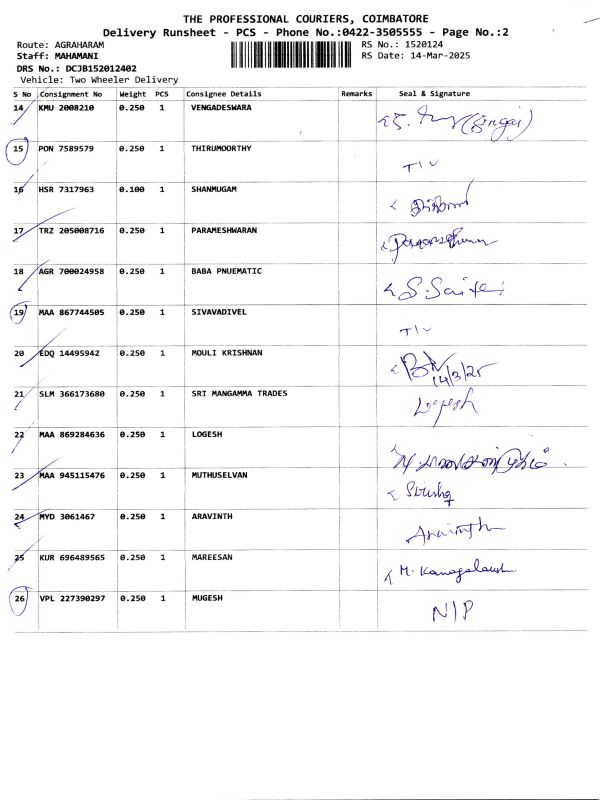 THE PROFESSIONAL COURIERS, COIMBATORE
Delivery Runsheet - PCS - Phone No.:0422-3505555 - Page No.:2
Route: AGRAHARAM RS No.: 1520124
Staff: MAHAMANI RS Date: 14-Mar-2025
DRS No.: DCJB152012402
Vehicle: Two Wheeler Delivery
S No Consignment No Weight PCS Consignee Details Remarks Seal & Signature
14 KMU 2008210 0.250 1 VENGADESWARA
15 PON 7589579 0.250 1 THIRUMOORTHY TIV
16 HSR 7317963 0.100 1 SHANMUGAM
17 TRZ 205008716 0.250 1 PARAMESHWARAN
18 AGR 700024958 0.250 1 BABA PNUEMATIC
19 MAA 867744505 0.250 1 SIVAVADIVEL TIV
20 EDQ 14495942 0.250 1 MOULI KRISHNAN 14/3/25
21 SLM 366173680 0.250 1 SRI MANGAMMA TRADES Logesh
22 MAA 869284636 0.250 1 LOGESH
23 MAA 945115476 0.250 1 MUTHUSELVAN
24 MYD 3061467 0.250 1 ARAVINTH Aravinth
25 KUR 696489565 0.250 1 MAREESAN
26 VPL 227390297 0.250 1 MUGESH N/P